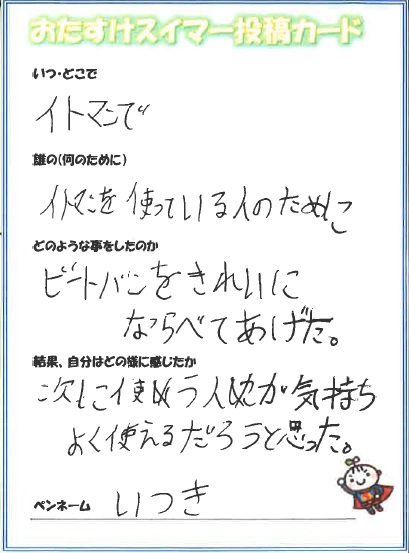 おたすけスイマー投稿カード
いつ・どこで
イトマンで
誰の(何のために)
イトマンを使っている人のために
どのような事をしたのか
ビートバンをきれいに
ならべてあげた。
結果、自分はどの様に感じたか
次に使う人が気持ち
よく使えるだろうと思った。
ペンネーム いつき